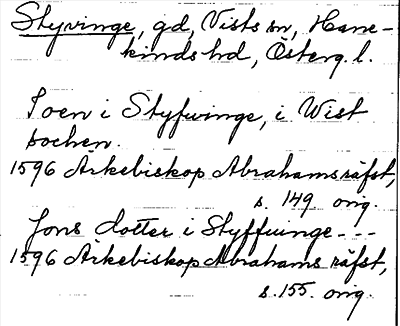 Styvinge, gd, Vists sn, Hane-
kinds hd, Österg. l.
Soen i Styfwinge, i Wist
sochen.
1596 Ärkebiskop Abrahams räfst,
s. 149 orig.
Jons dotter i Styffuinge ---
1596 Ärkebiskop Abrahams räfst,
s. 155. orig.